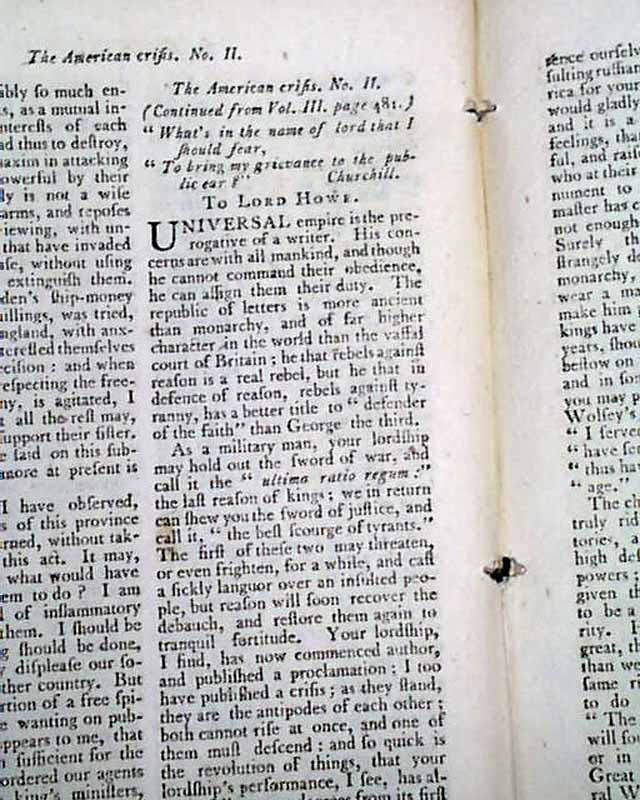 The American criſis. No. II.
ſibly ſo much en-
s, as a mutual in-
ntereſts of each
ad thus to deſtroy,
maxim in attacking
powerful by their
ly is not a wiſe
arms, and repoſes
viewing, with un-
that have invaded
aſe, without uſing
extinguiſh them.
den's ſhip-money
hillings, was tried,
ngland, with anx-
tereſted themſelves
eciſion : and when
reſpecting the free-
ny, is agitated, I
t all the reſt may,
ſupport their ſiſter.
e ſaid on this ſub-
more at preſent is
I have obſerved,
s of this province
rned, without tak-
this act. It may,
what would have
em to do ? I am
l of inflammatory
them. I ſhould be
g ſhould be done,
y diſpleaſe our ſo-
ther country. But
rtion of a free ſpi-
e wanting on pub-
appears to me, that
n ſufficient for the
ordered our agents
king's miniſters,
The American criſis. No. II.
(Continued from Vol. III. page 481.)
“ What's in the name of lord that I
ſhould fear,
“ To bring my grievance to the pub-
lic ear ?” Churchill.
To Lord Howe.
UNIVERSAL empire is the pre-
rogative of a writer. His con-
cerns are with all mankind, and though
he cannot command their obedience,
he can aſſign them their duty. The
republic of letters is more ancient
than monarchy, and of far higher
character in the world than the vaſſal
court of Britain ; he that rebels againſt
reaſon is a real rebel, but he that in
defence of reaſon, rebels againſt ty-
ranny, has a better title to “ defender
of the faith” than George the third.
As a military man, your lordſhip
may hold out the ſword of war, and
call it the “ ultima ratio regum :”
the laſt reaſon of kings ; we in return
can ſhew you the ſword of juſtice, and
call it, “ the beſt ſcourge of tyrants.”
The firſt of theſe two may threaten,
or even frighten, for a while, and caſt
a ſickly languor over an inſulted peo-
ple, but reaſon will ſoon recover the
debauch, and reſtore them again to
tranquil fortitude. Your lordſhip,
I find, has now commenced author,
and publiſhed a proclamation ; I too
have publiſhed a criſis ; as they ſtand,
they are the antipodes of each other ;
both cannot riſe at once, and one of
them muſt deſcend ; and ſo quick is
the revolution of things, that your
lordſhip's performance, I ſee, has al-
from its firſt
ſence ourſelv
ſulting ruffian
rica for your
would gladly
and it is a
feelings, that
ful, and raiſe
who at their
nument to
maſter has c
not enough
Surely th
ſtrangely de
monarchy,
wear a ma
make him
kings have
years, ſhou
beſtow on
and in ſo
you may p
Wolſey's
“ I ſerve
“ have ſe
“ thus ha
“ age.”
The ch
truly rid
tories, a
high deſ
powers
given th
to be a
rity. H
great, th
than we
ſame ri
to do
“ The
will ſou
or in
Great
ral W